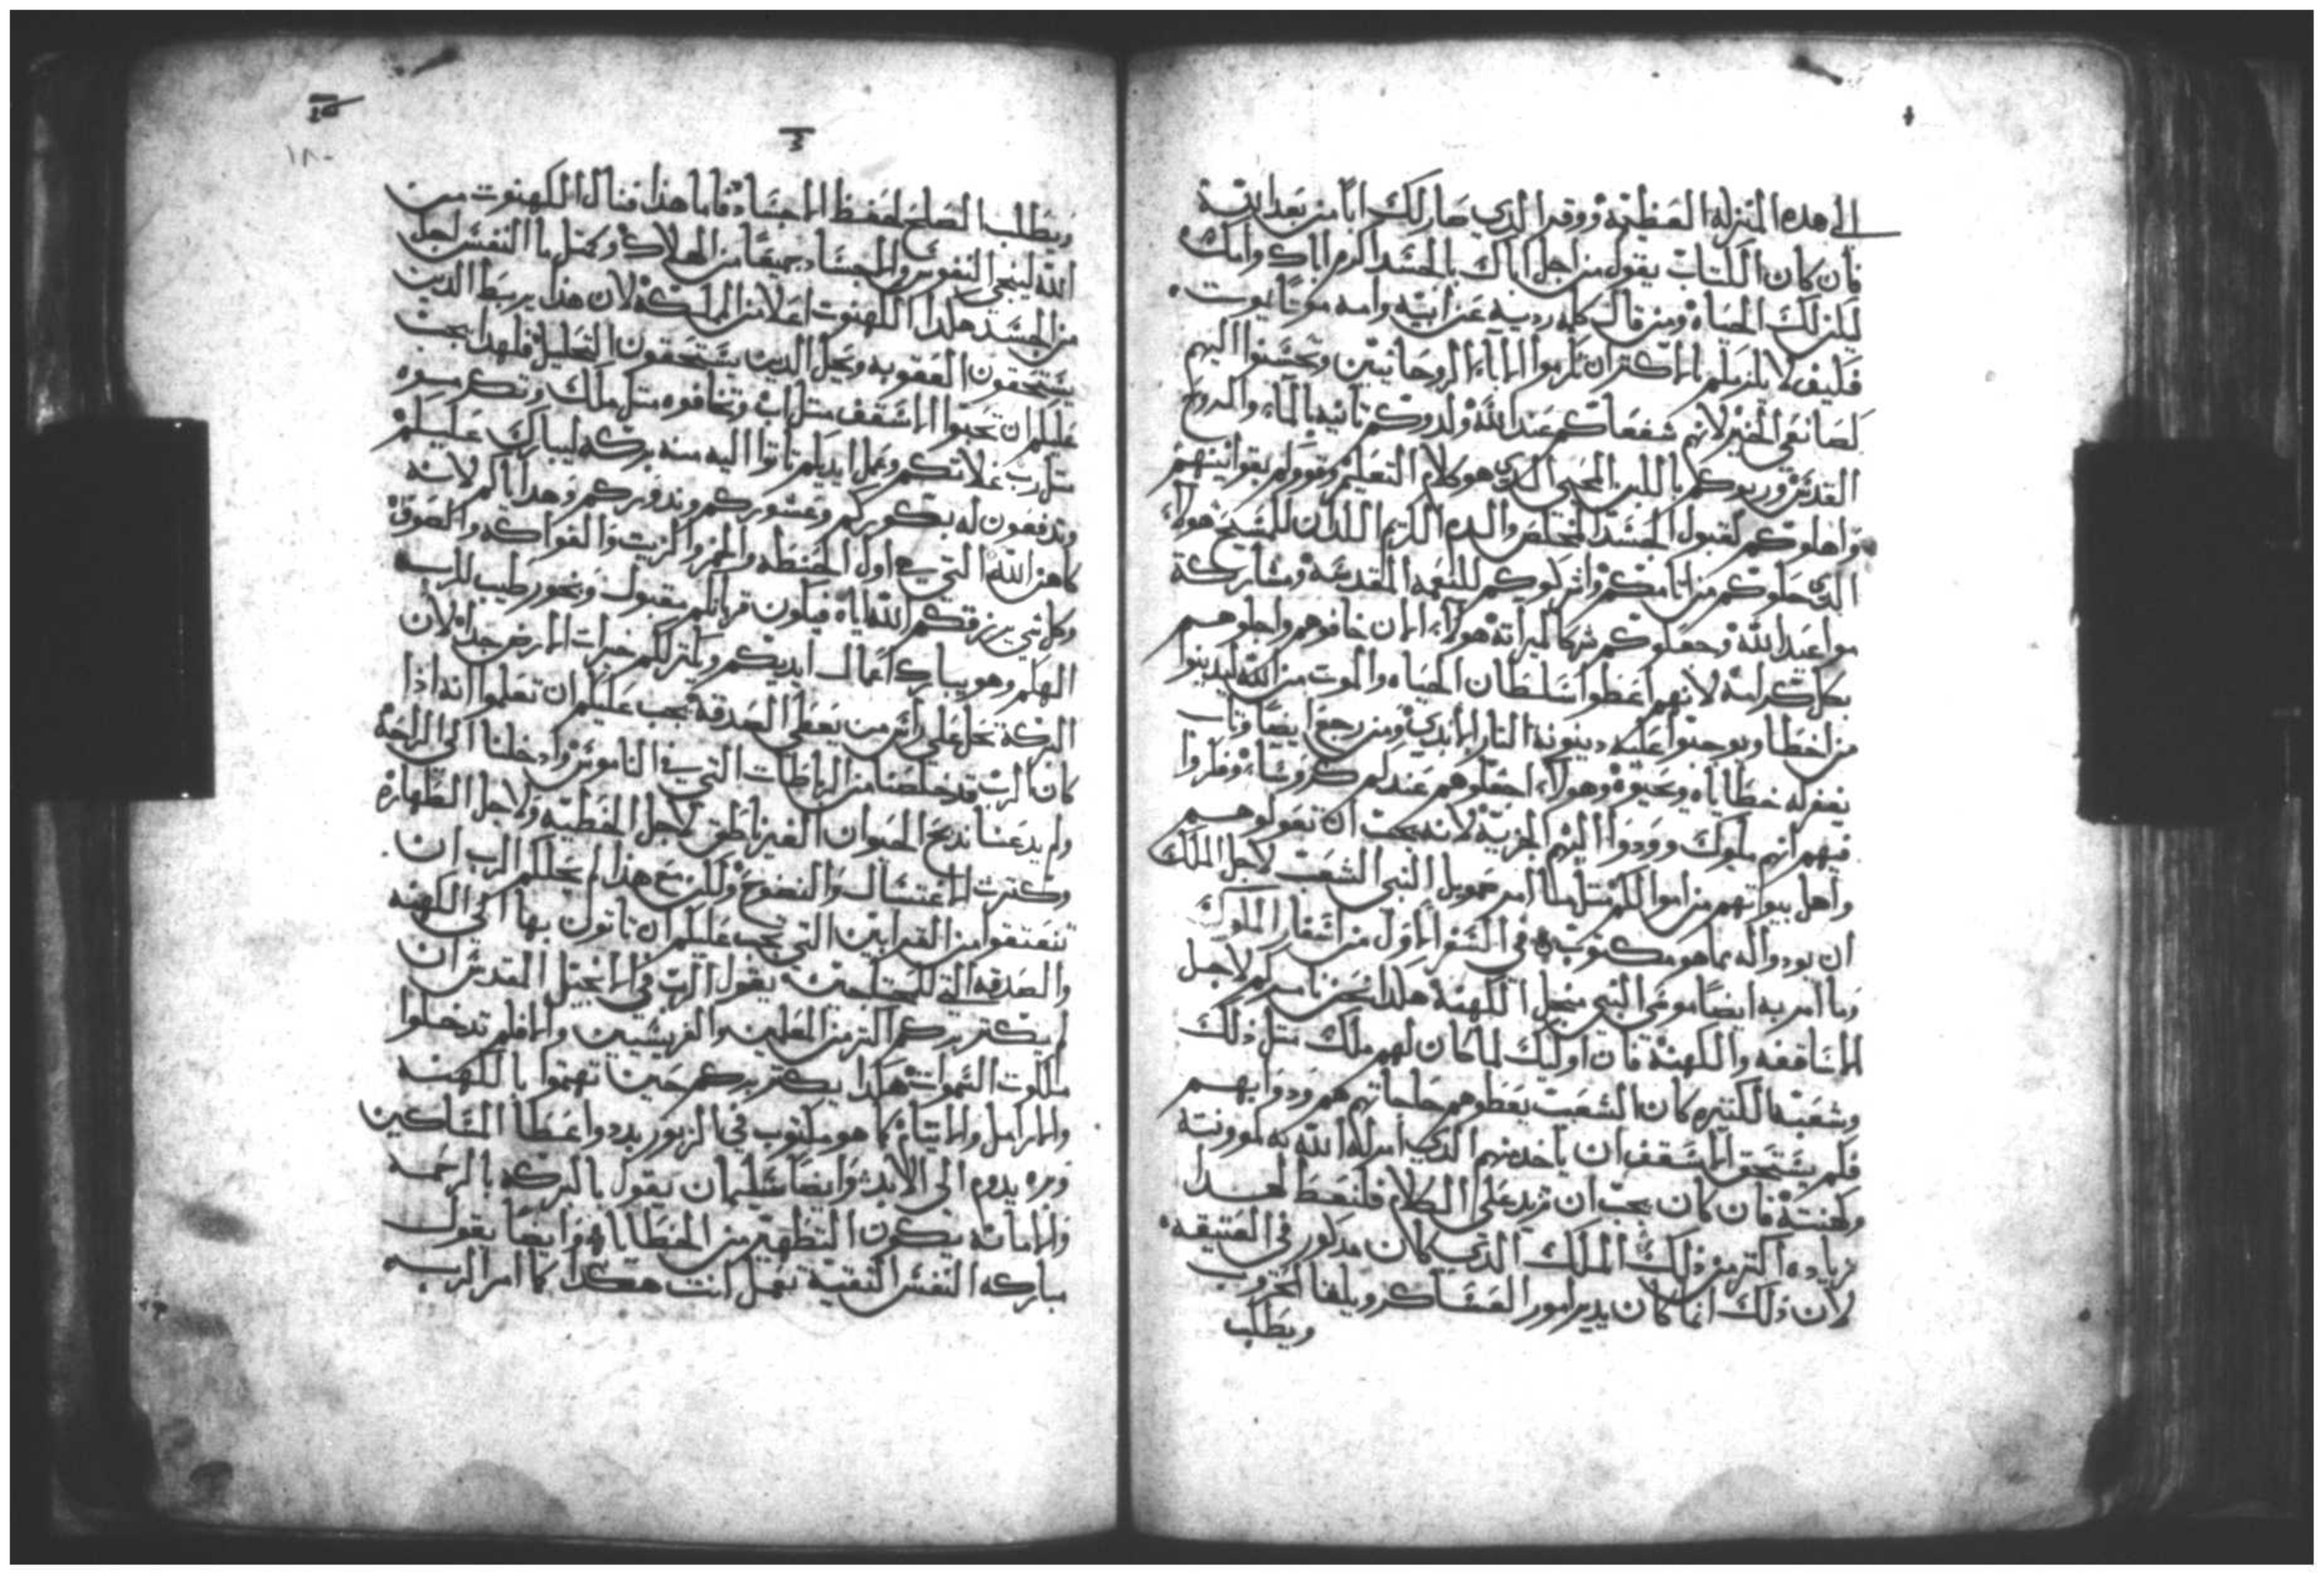 الى هده المنزله العظيمة ووقر الدي صار لك ابا من بعد الله
فان كان الكتاب يقول من اجل اباك بالجسد اكرم اباك وامك
لكن لك الحياه ومن قال كلمه رديه عن ابيه وامه موتا يموت
فكيف لا يلزمكم بالاكتر ان تكرموا الاباء الروحانيين وتحسنوا اليهم
كصانعي الخير لانهم شفعاكم عند الله ولدوكم تانيه بالماء والروح
القدس وربوكم باللبن المحيي الدي هو كلام التعليم وقووكم بقوانينهم
واهلوكم لقبول الجسد المخلص والدم الكريم اللدان للمسيح هولاء
الدي حلوكم من اتامكم واشركوكم للنعمه المقدسة ومشاركة
مواعيد الله وجعلوكم شركا ميراته هولاء الان خافوهم واجلوهم
بكل كرامة لانهم اعطوا سلطان الحياه والموت من الله ليدينوا
من اخطا ويوجبوا عليه دينونة النار الابدي ومن رجع ايضا وتاب
يغفر له خطاياه ويحيوه وهولاء اجعلوهم عندكم كروساء وظنوا
فيهم انهم ملوك وودوا اليهم الجزية لانه يجب ان تعولوهم
واهل بيوتهم من اموالكم مثل ما امر صمويل النبي الشعب لاجل الملك
ان يودوا له بما هو مكتوب في السفر الاول من اسفار الملوك
وما امر به ايضا موسى النبي من اجل الكهنة هكدا نحن نامركم لاجل
الاساقفه والكهنة فان اوليك لما كان لهم ملك متل دلك
وشعبه الكتيره كان الشعب يعطوهم حاجاتهم هم ودوابهم
فكم يستحق الاسقف ان ياخد منهم الدي امر له الله به لموونته
وكهنته فان كان يجب ان نزيد على الكلام فلنعط لهدا
زياده اكتر من دلك الملك الدي كان مدكور في العتيقه
لان دلك انما كان يدبر امور العساكر ويلقا الحروب
ويطلب
ويطلب الصلح لحفظ الاجساد فاما هدا فنال الكهنوت من
الله لينجي النفوس والاجساد جميعا من الهلاك وكمتل ما النفس اجل
من الجسد هكدا الكهنوت اعلا من المملكة لان هدا يربط الدين
يستحقون العقوبه ويحل الدين يستحقون التحليل فلهدا يجب
عليكم ان تحبوا الاسقف متل اب وتخافوه متل ملك وتكرموه
متل رب غلاتكم وعمل ايديكم تاتوا اليه منه بركه ليبارك عليكم
وتدفعون له بكوركم وعشوركم وندوركم وهداياكم لانه
كاهن الله التي هي اول الحنطه والخمر والزيت والفواكه والصوف
وكل شي يرزقكم الله اياه فيكون قربانكم مقبول وبخور طيب للرب
الهكم وهو يبارك اعمال ايديكم ويكتر لكم خيرات الارض جدا لان
البركة تحل على راس من يعطي الصدقه يجب عليكم ان تعلموا انه ادا
كان الرب قد خلصنا من الرباطات التي في الناموس وادخلنا الى الراحة
ولم يدعنا ندبح الحيوان الغير ناطق لاجل الخطية ولاجل الطهارة
وكترت الاغتسال والنضوح ولكن مع هدا لم يحللكم الرب ان
تنعتقوا من القرابين التي يجب عليكم ان تاتون بها الى الكهنه
والصدقه التي للمحتاجين يقول الرب في الانجيل المقدس ان
لم يكتر بركم اكتر من المعلمين والفريسيين والا فلم تدخلوا
ملكوت السموات هكدا يكتر بركم حين تهتموا بالكهنه
والارامل والايتام كما هو مكتوب في الزبور بدد واعطا المساكين
وبره يدوم الى الابد وايضا سليمان يقول بالبركه بالرحمه
والامانه يكون التطهير من الخطايا وايضا يقول
مباركه النفس النقية تعمل انت هكدا كما امر الرب